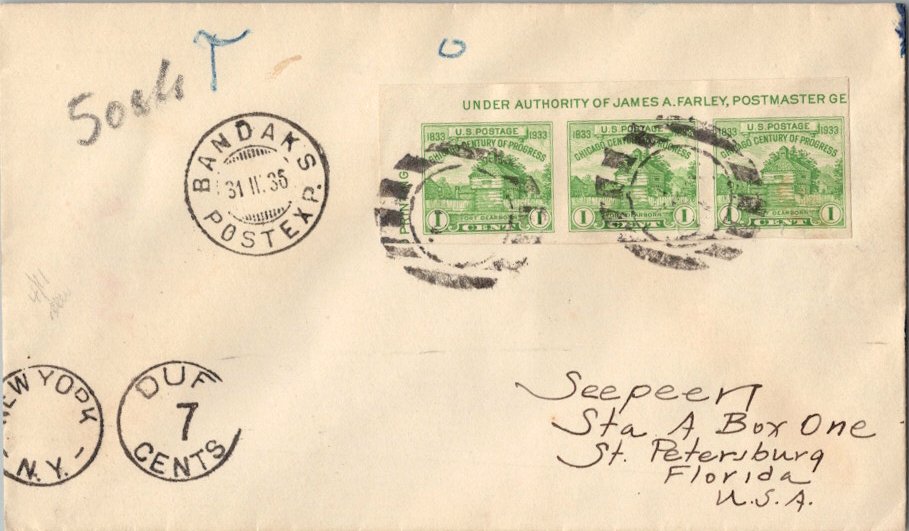 50 ch T
0
BANDAKS
31 III. 35
POSTEXP.
UNDER AUTHORITY OF JAMES A. FARLEY, POSTMASTER GE
1833 U.S. POSTAGE 1933
CHICAGO CENTURY OF PROGRESS
FORT DEARBORN
1 CENT 1
1833 U.S. POSTAGE 1933
CHICAGO CENTURY OF PROGRESS
FORT DEARBORN
1 CENT 1
1833 U.S. POSTAGE 1933
CHICAGO CENTURY OF PROGRESS
FORT DEARBORN
1 CENT 1
NEW YORK
N.Y.
DUE
7
CENTS
Seepeen
Sta A Box One
St. Petersburg
Florida
U.S.A.